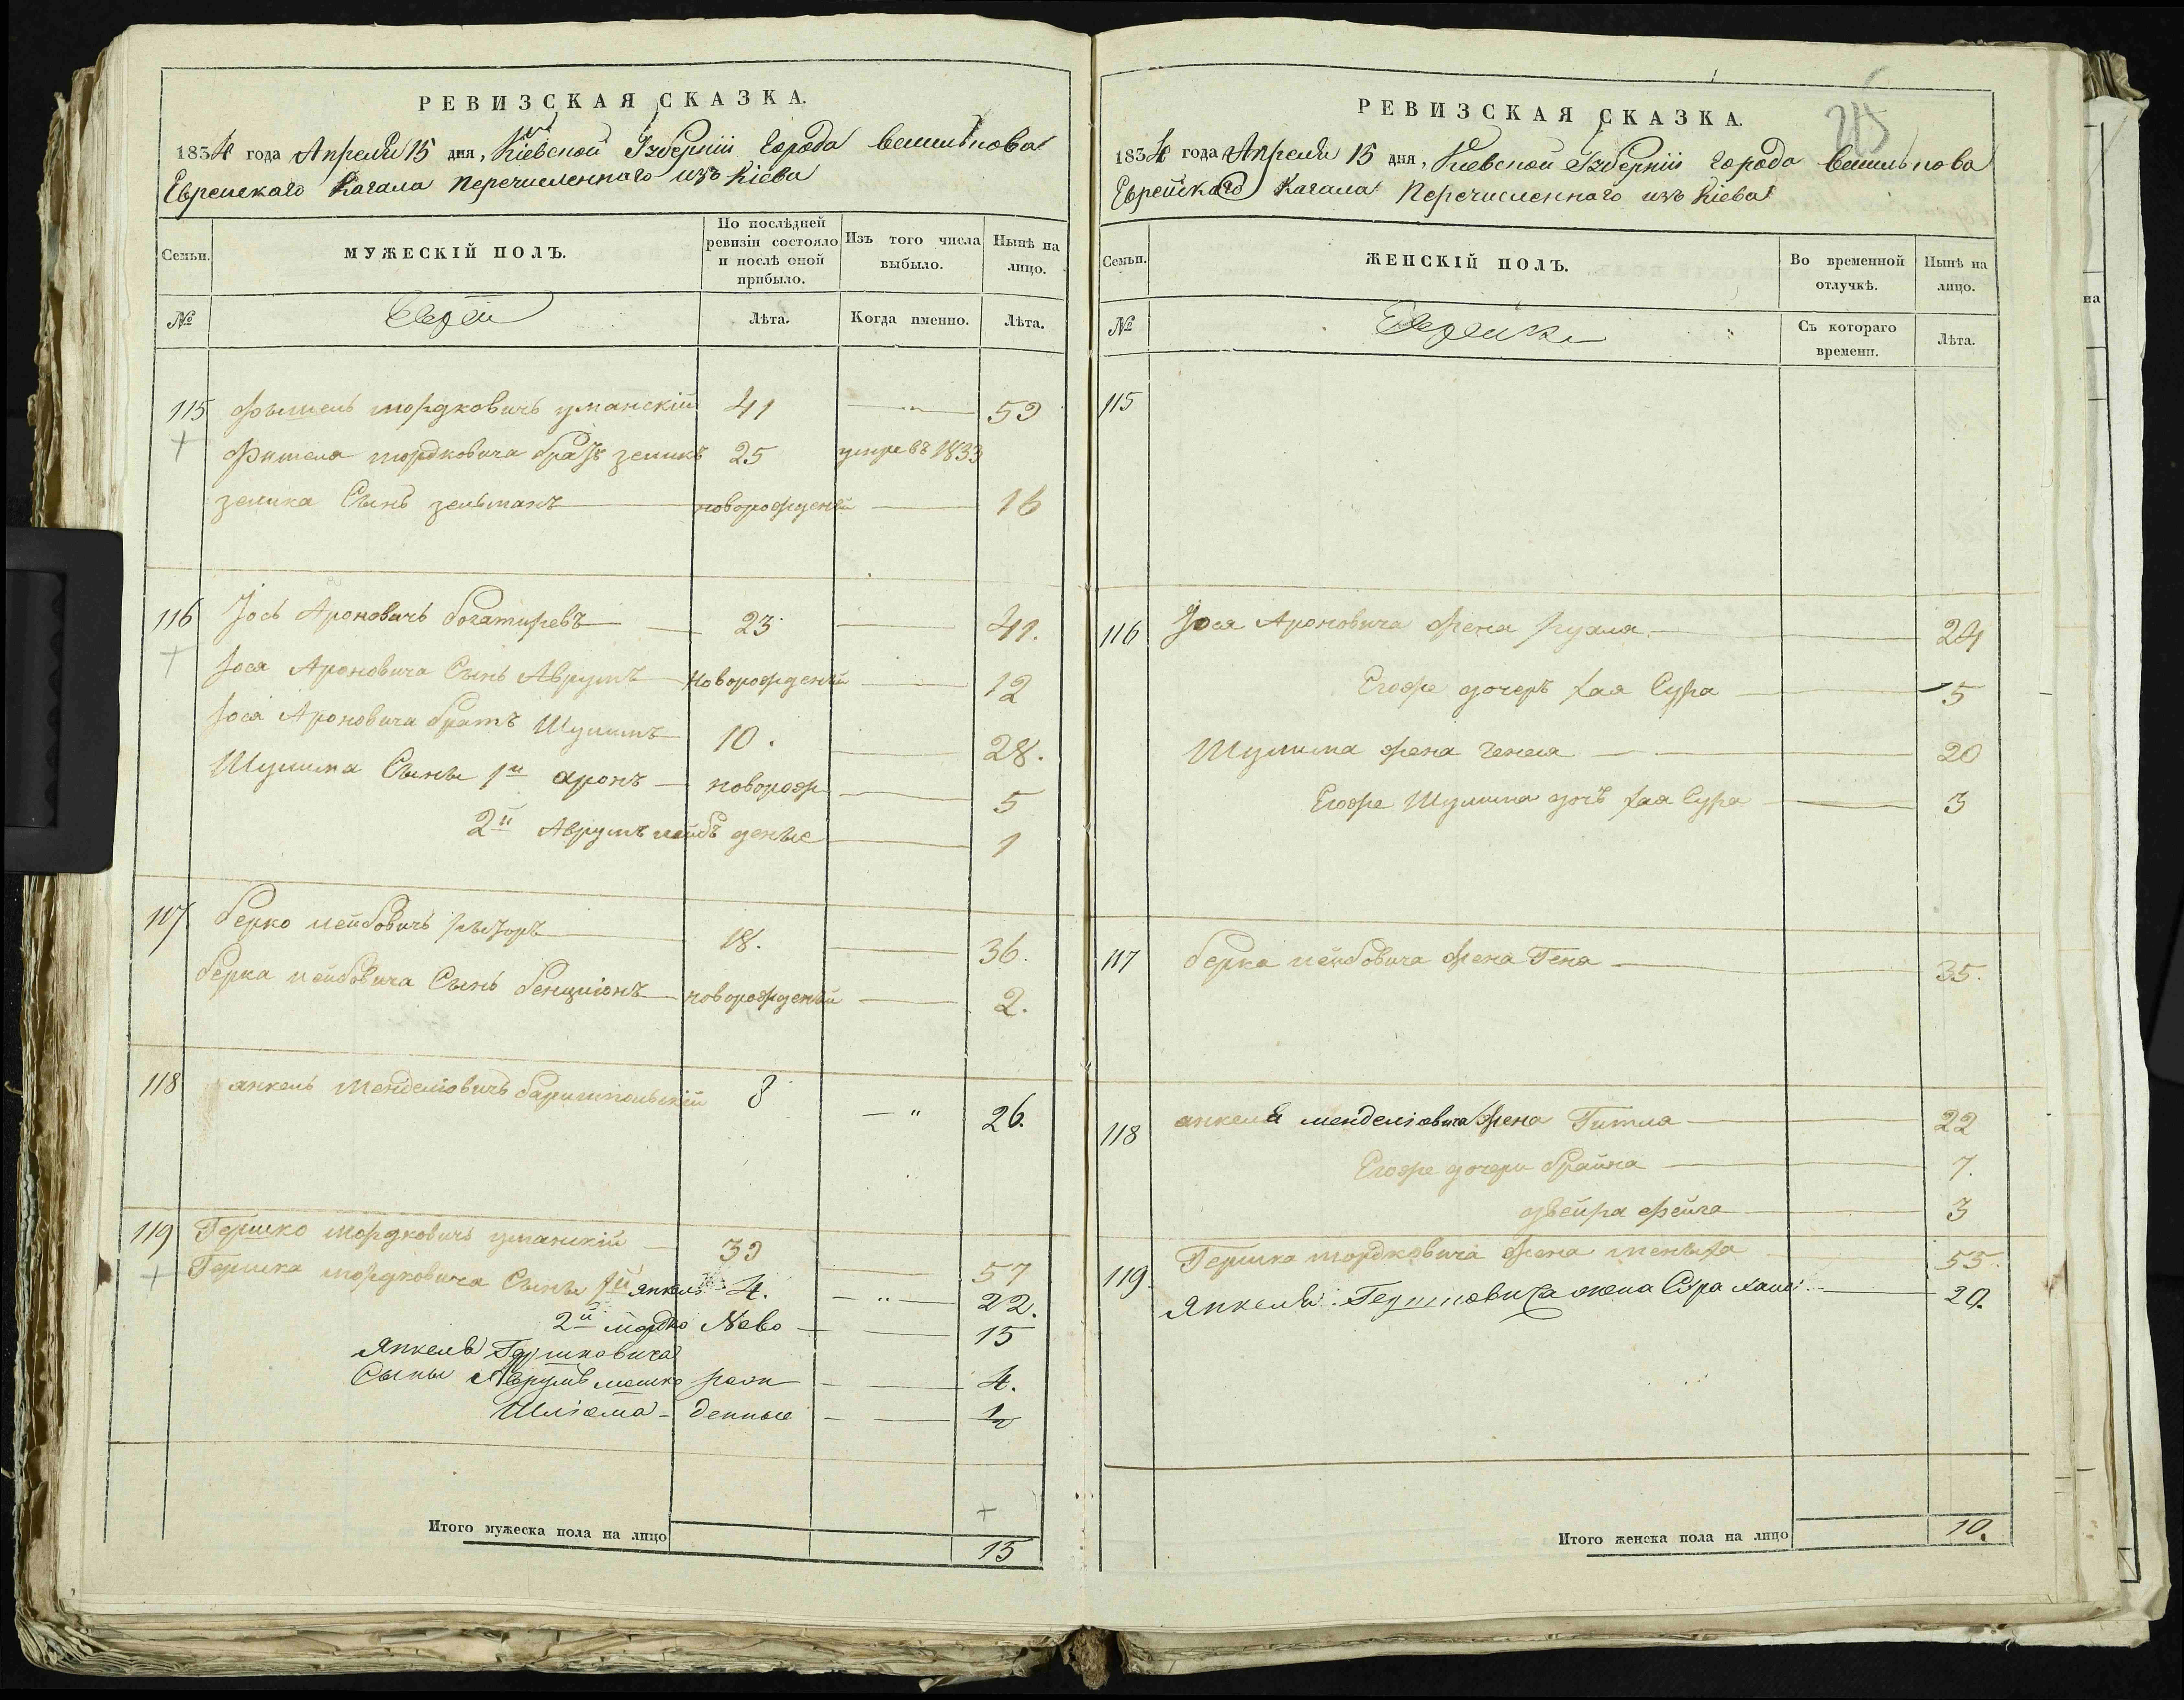 РЕВИЗСКАЯ СКАЗКА.
1834 года Апреля 15 дня, Кіевской Губерніи Города Василькова
Еврейскаго Кагала Перечисленнаго изъ Кіева
Семьи.
МУЖЕСКІЙ ПОЛЪ.
По послѣдней ревизіи состояло и послѣ оной прибыло.
Изъ того числа выбыло.
Нынѣ на лицо.
№
Евреи
Лѣта.
Когда именно.
Лѣта.
115 Фишель мордковичъ уманскій 41 59
Фишеля мордковича братъ зеликъ 25 умре въ 1833
зелика Сынъ зельманъ новорожденый 16
116 Іось Ароновичъ богатиревъ 23 41.
Іося Ароновича Сынъ Аврумъ Новорожденый 12
Іося Ароновича братъ Шулимъ 10. 28.
Шулима Сыны 1й аронъ новорож 5
2й Аврумъ лейбъ деные 1
117 берко лейбовичъ 18. 36.
берка лейбовича Сынъ бенціонъ новорожденый 2.
118 янкель Менделіовичъ баришпольскій 8 — " 26.
119 Гершко мордковичъ уманскій 39 57
Гершка мордковича Сыны 1й янкель 4. — " — 22.
2й мордко Ново 15
Янкеля Гершковича
Сыны Аврумъ мошко рож 4.
Шліома денные 1/2
Итого мужеска пола на лицо 15
215
РЕВИЗСКАЯ СКАЗКА.
1834 года Апреля 15 дня, Кіевской Губерніи Города Василькова
Еврейскаго Кагала Перечисленнаго изъ Кіева
Семьи.
ЖЕНСКІЙ ПОЛЪ.
Во временной отлучкѣ.
Нынѣ на лицо.
№
Еврейки
Съ котораго времени.
Лѣта.
115
116 Іося Ароновича жена рухля 24
Егоже дочеръ хая Сура 5
Шулима жена Генея 20
Егоже Шулима дочъ хая Сура 3
117 берка лейбовича жена Геня 35.
118 янкеля менделіовича жена Гитля 22
Егоже дочери брайна 7.
двейра фейга 3
119 Гершка мордковича жена меныха 55.
Янкеля Гершковича жена Сура хана 20.
Итого женска пола на лицо 10.